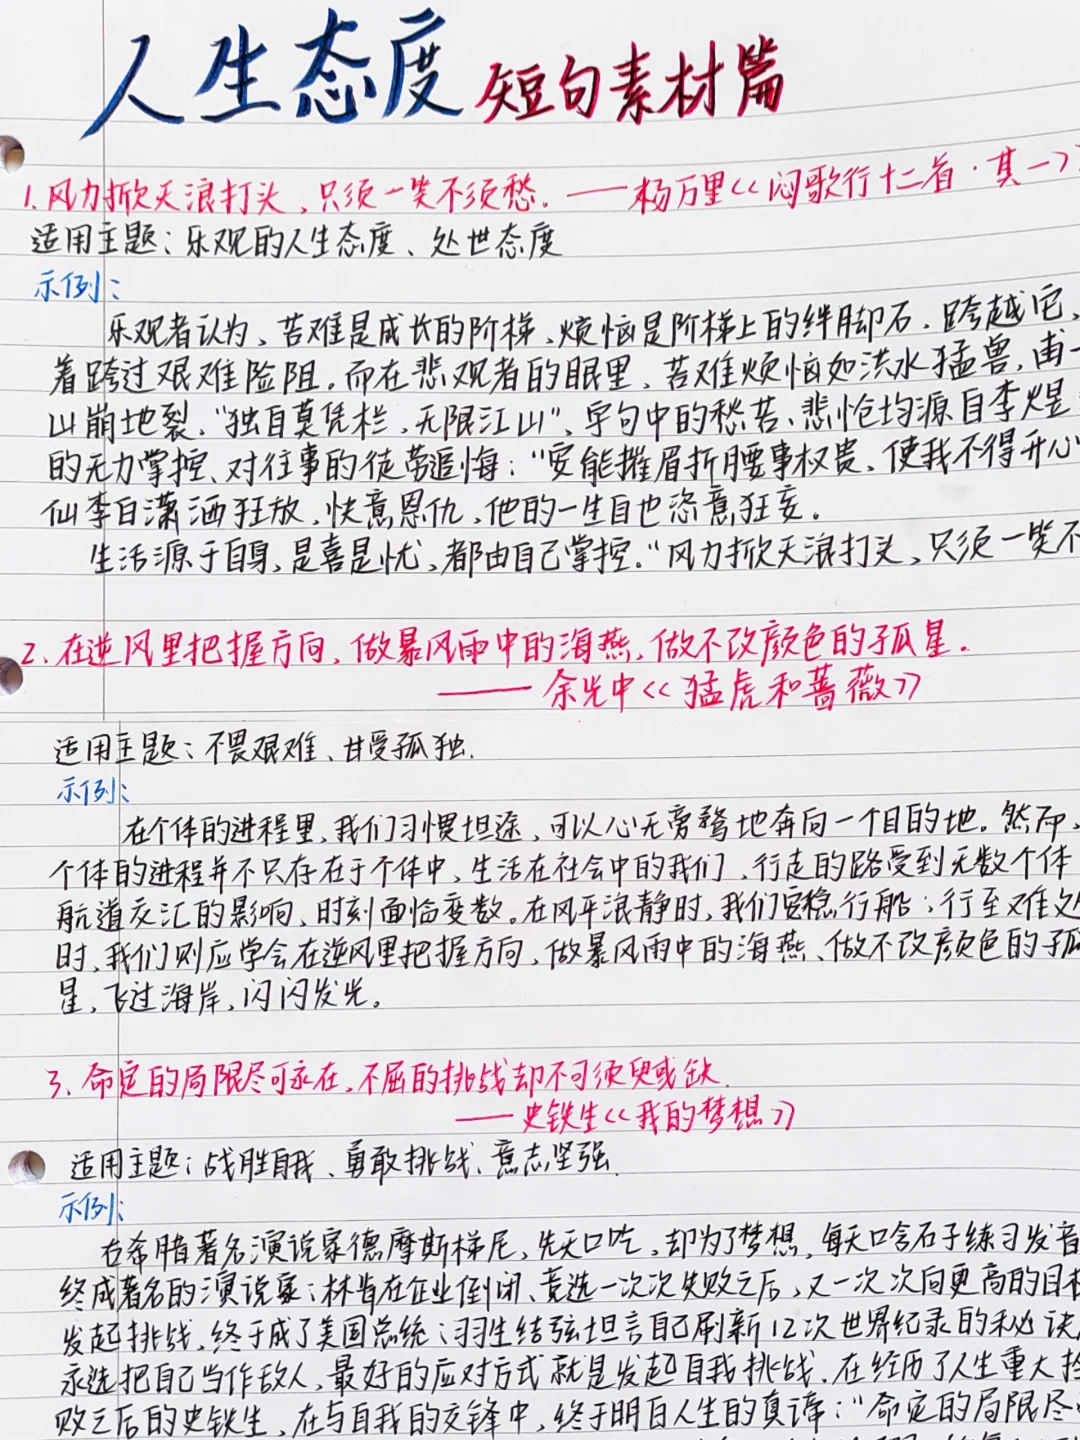 人生态度 短句素材篇
1.风力掀天浪打头,只须一笑不须愁.——杨万里《闷歌行十二首·其一》
适用主题:乐观的人生态度、处世态度
示例:
乐观者认为,苦难是成长的阶梯,烦恼是阶梯上的绊脚石,跨越它,
着跨过艰难险阻,而在悲观者的眼里,苦难烦恼如洪水猛兽,甫一
山崩地裂,“独自莫凭栏,无限江山”,字句中的愁苦、悲怆均源自李煜
的无力掌控、对往事的徒劳追悔:“安能摧眉折腰事权贵,使我不得开心
仙李白潇洒狂放,快意恩仇,他的一生自也恣意狂妄。
生活源于自身,是喜是忧,都由自己掌控.“风力掀天浪打头,只须一笑不
2.在逆风里把握方向,做暴风雨中的海燕,做不改颜色的孤星。
——余光中《猛虎和蔷薇》
适用主题:不畏艰难、甘受孤独.
示例:
在个体的进程里,我们习惯坦途,可以心无旁骛地奔向一个目的地。然而,
个体的进程并不只存在于个体中,生活在社会中的我们,行走的路受到无数个体
航道交汇的影响,时刻面临变数。在风平浪静时,我们安稳行船;行至难处
时,我们则应学会在逆风里把握方向,做暴风雨中的海燕、做不改颜色的孤
星,飞过海岸,闪闪发光。
3.命定的局限尽可永在,不屈的挑战却不可须臾或缺.
——史铁生《我的梦想》
适用主题:战胜自我、勇敢挑战、意志坚强.
示例:
古希腊著名演说家德摩斯梯尼,先天口吃,却为了梦想,每天口含石子练习发音
终成著名的演说家;林肯在企业倒闭、竞选一次次失败之后,又一次次向更高的目标
发起挑战,终于成了美国总统;羽生结弦坦言自己刷新12次世界纪录的秘诀
永远把自己当作敌人,最好的应对方式就是发起自我挑战,在经历了人生重大挫
败之后的史铁生,在与自我的交锋中,终于明白人生的真谛:“命定的局限尽